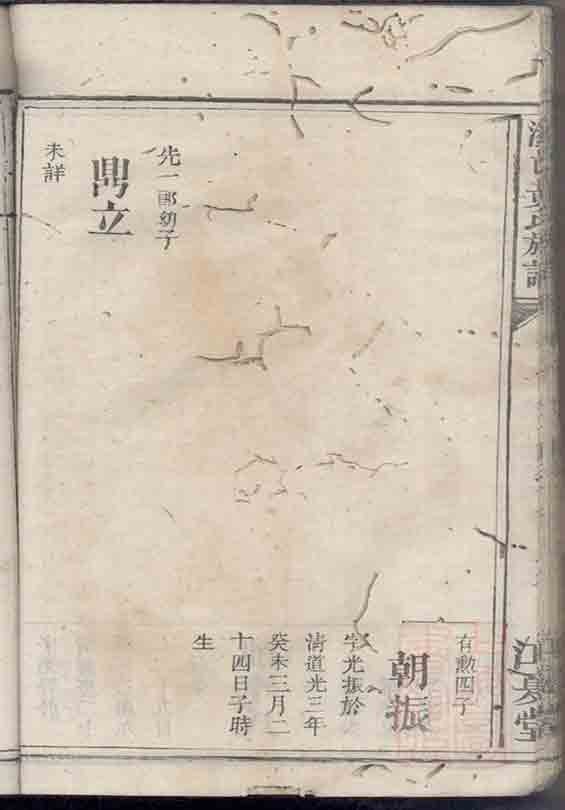 黃氏族譜
江夏堂
先一郎幼子
鼎立
未詳
有勳四子
朝振
字光振於
清道光三年
癸未三月二
十四日子時
生